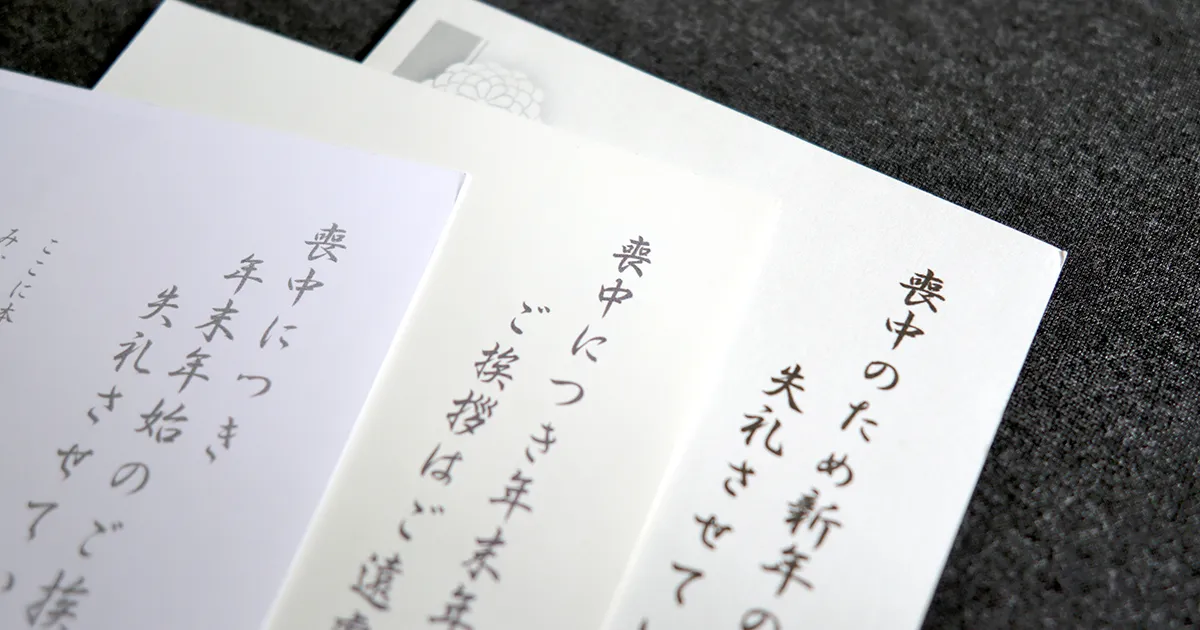 喪中のため新年の
失礼させて
喪中につき年末年
ご挨拶はご遠慮
喪中につき
年末年始のご挨
失礼させてい
ここに本
み